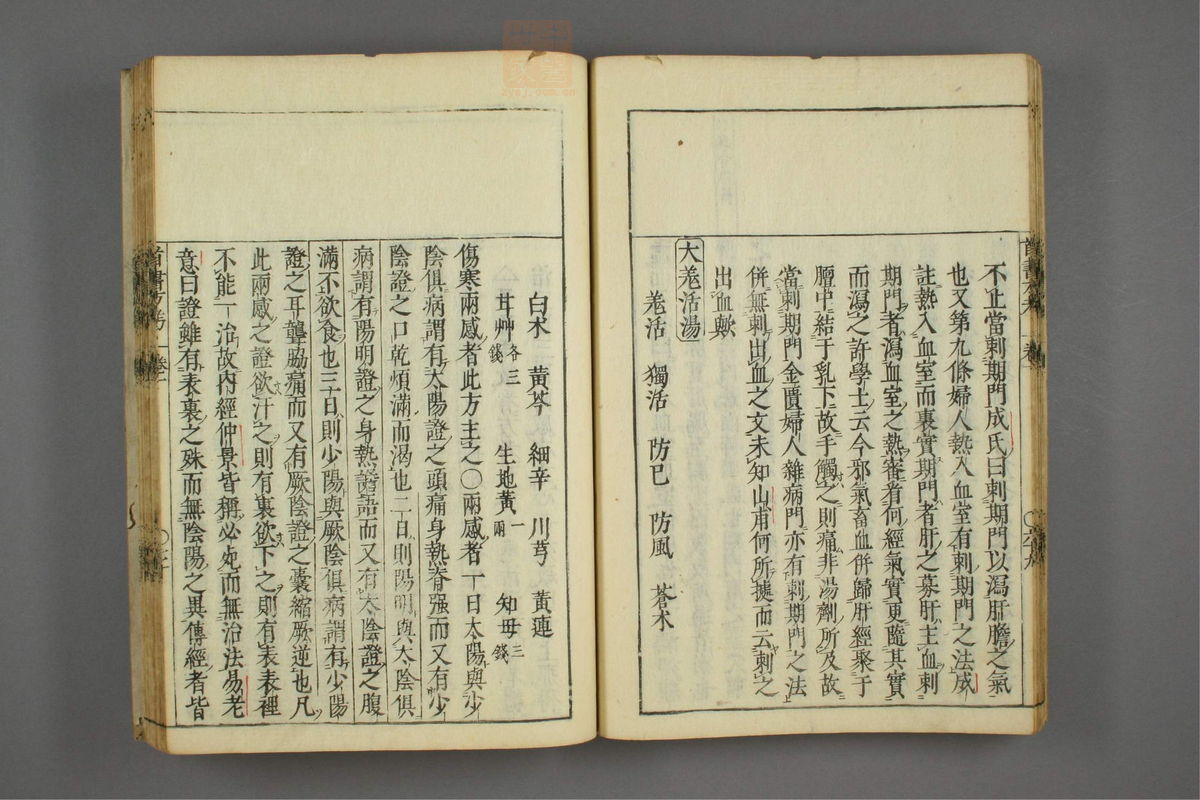 不止當刺期門成氏曰刺期門以瀉肝膽之氣
也又第九條婦人熱入血室有刺期門之法成
註熱入血室而裏實期門者肝之募肝主血刺
期門者瀉血室之熱審看何經氣實更隨其實
而瀉之許學士云今邪氣畜血併歸肝經聚于
膻中結于乳下故手觸之則痛非湯劑所及故
當刺期門金匱婦人雜病門亦有刺期門之法
併無刺出血之文未知山甫何所據而云刺之
出血歟
大羗活湯
羗活 獨活 防已 防風 蒼术
白术 黃芩 細辛 川芎 黃連
甘艸各三錢 生地黃一兩 知母三錢
傷寒兩感者此方主之〇兩感者一日太陽與少
陰俱病謂有太陽證之頭痛身熱脊强而又有少
陰證之口乾煩滿而渴也二日則陽明與太陰俱
病謂有陽明證之身熱譫語而又有太陰證之腹
滿不欲食也三日則少陽與厥陰俱病謂有少陽
證之耳聾脇痛而又有厥陰證之囊縮厥逆也凡
此兩感之證欲汗之則有裏欲下之則有表表裡
不能一治故內經仲景皆稱必死而無治法易老
意曰證雖有表裏之殊而無陰陽之異傳經者皆